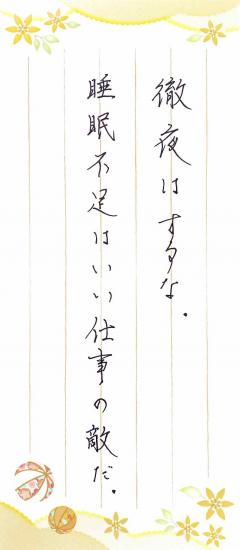 徹夜はするな.
睡眠不足はいい仕事の敵だ.